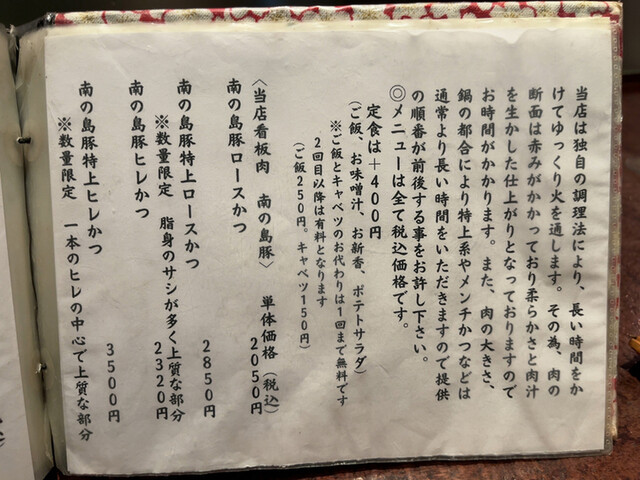 当店は独自の調理法により、長い時間をか
けてゆっくり火を通します。その為、肉の
断面は赤みがかかっており柔らかさと肉汁
を生かした仕上がりとなっておりますので
お時間がかかります。また、肉の大きさ、
鍋の都合により特上系やメンチかつなどは
通常より長い時間をいただきますので提供
の順番が前後する事をお許し下さい。
◎メニューは全て税込価格です。
定食は+400円
(ご飯、お味噌汁、お新香、ポテトサラダ)
※ご飯とキャベツのお代わりは1回まで無料です
2回目以降は有料となります
(ご飯250円。キャベツ150円)
〈当店看板肉 南の島豚〉 単体価格(税込)
南の島豚ロースかつ 2050円
南の島豚特上ロースかつ 2850円
※数量限定 脂身のサシが多く上質な部分
南の島豚ヒレかつ 2320円
南の島豚特上ヒレかつ 3500円
※数量限定 一本のヒレの中心で上質な部分